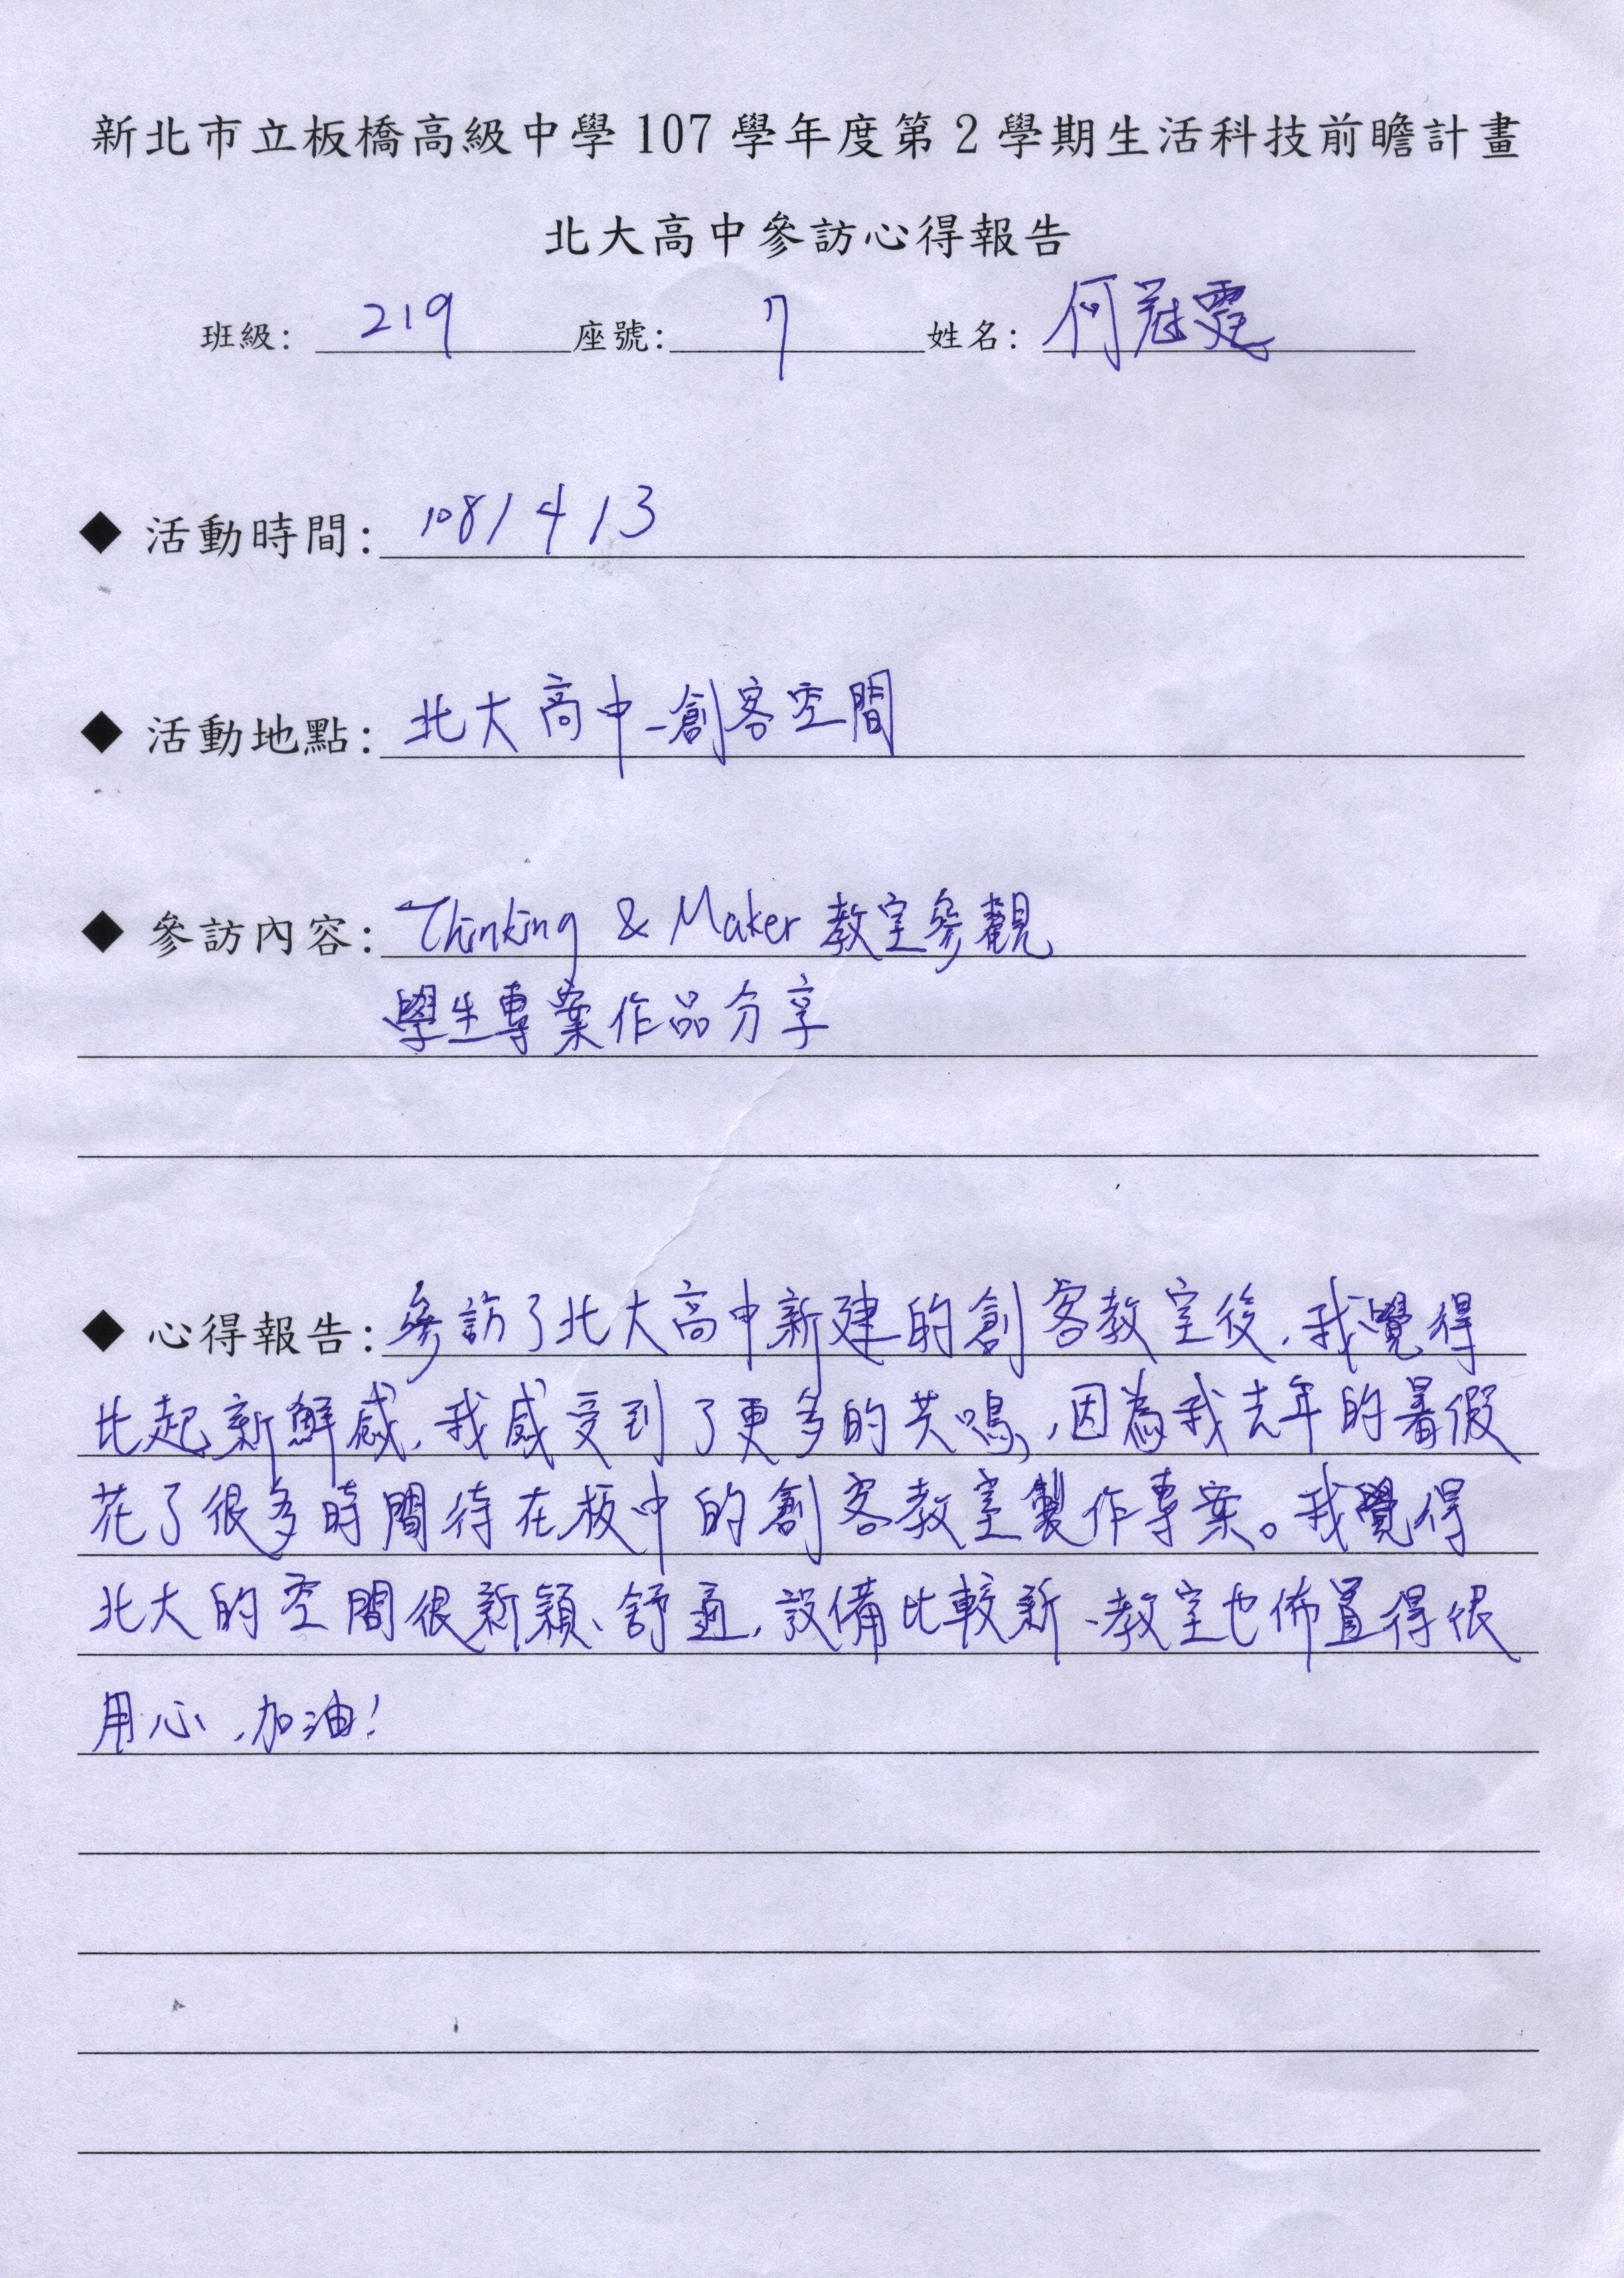 新北市立板橋高級中學 107 學年度第 2 學期生活科技前瞻計畫
北大高中參訪心得報告
班級: 219 座號: 7 姓名: 何冠霆
◆ 活動時間: 108/4/3
◆ 活動地點: 北大高中-創客空間
◆ 參訪內容: Thinking & Maker 教室參觀
學生專案作品分享
◆ 心得報告: 參訪了北大高中新建的創客教室後,我覺得
比起新鮮感,我感受到了更多的共鳴,因為我去年的暑假
花了很多時間待在板中的創客教室製作專案。我覺得
北大的空間很新穎、舒適,設備比較新、教室也佈置得很
用心,加油!